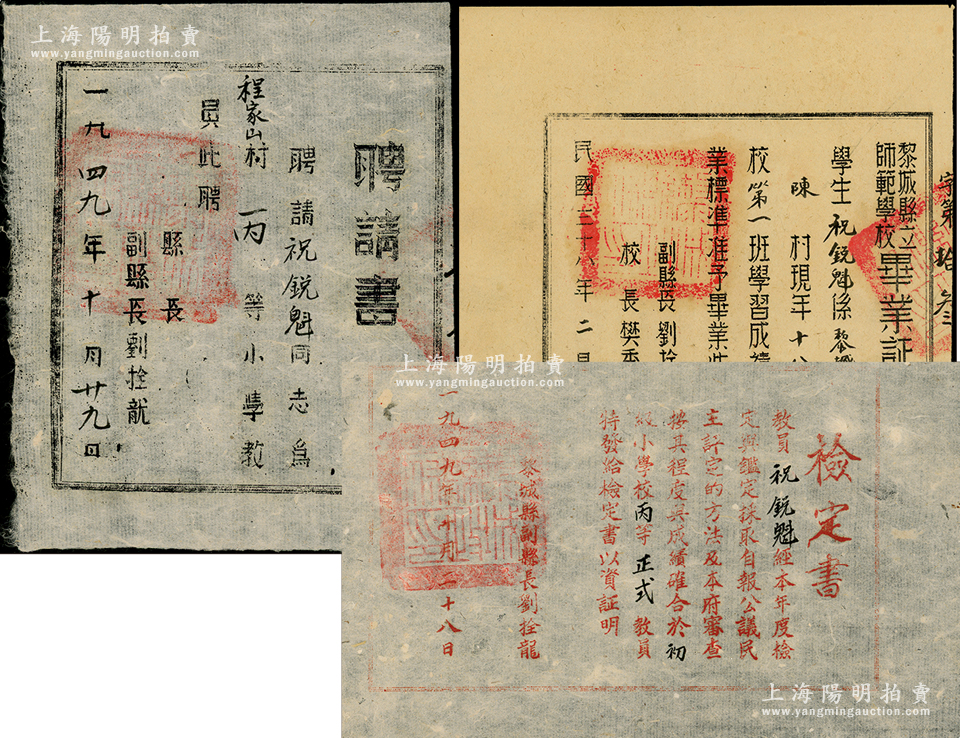 上海陽明拍賣
www.yangmingauction.com
聘請書
聘請祝銳魁同志爲
程家山村 丙等小學教
員此聘
縣長
副縣長劉拴龍
一九四九年十月廿九日
上海陽明拍賣
www.yangmingauction.com
字第拾叁
黎城縣立
師範學校畢業証
學生祝銳魁係黎
陳村現年十八
校第一班學習成績
業標準准予畢業此
校長樊
副縣長劉拴
民國三十八年二月
檢定書
教員祝銳魁經本年度檢
定與鑑定採取自報公議民
主評定的方法及本府審查
按其程度與成績確合於初
級小學校丙等正式教員
特發給檢定書以資証明
黎城縣副縣長劉拴龍
一九四九年十月二十八日
上海陽明拍賣
www.yangmingauction.com